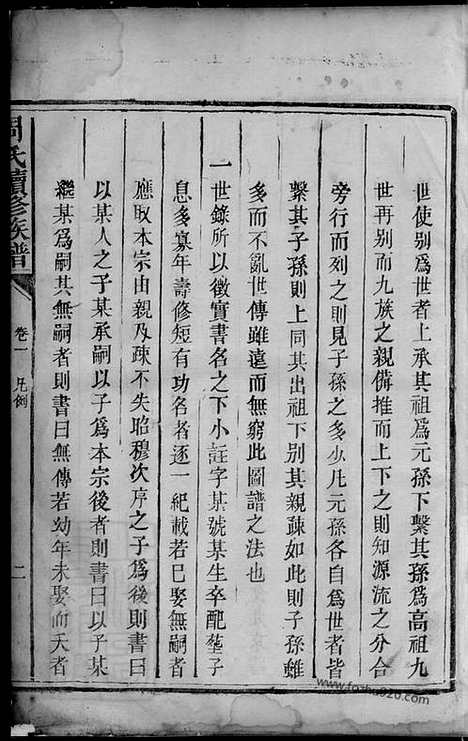 世使别爲世者上承其祖爲元孫下繫其孫爲高祖九
世再别而九族之親備推而上下之則知源流之分合
旁行而列之則見子孫之多少凡元孫各自爲世者皆
繫其子孫則上同其出祖下别其親疎如此則子孫雖
多而不亂世傳雖遠而無窮此圖譜之法也
一世錄所以徵實書名之下小註字某號某生卒配塟子
息多寡年壽修短有功名者逐一紀載若已娶無嗣者
應取本宗由親及疎不失昭穆次序之子爲後則書曰
以某人之子某承嗣以子爲本宗後者則書曰以子某
繼某爲嗣其無嗣者則書曰無傳若幼年未娶而夭者
周氏續修族譜
卷一 凡例
二
www.fozhu920.com